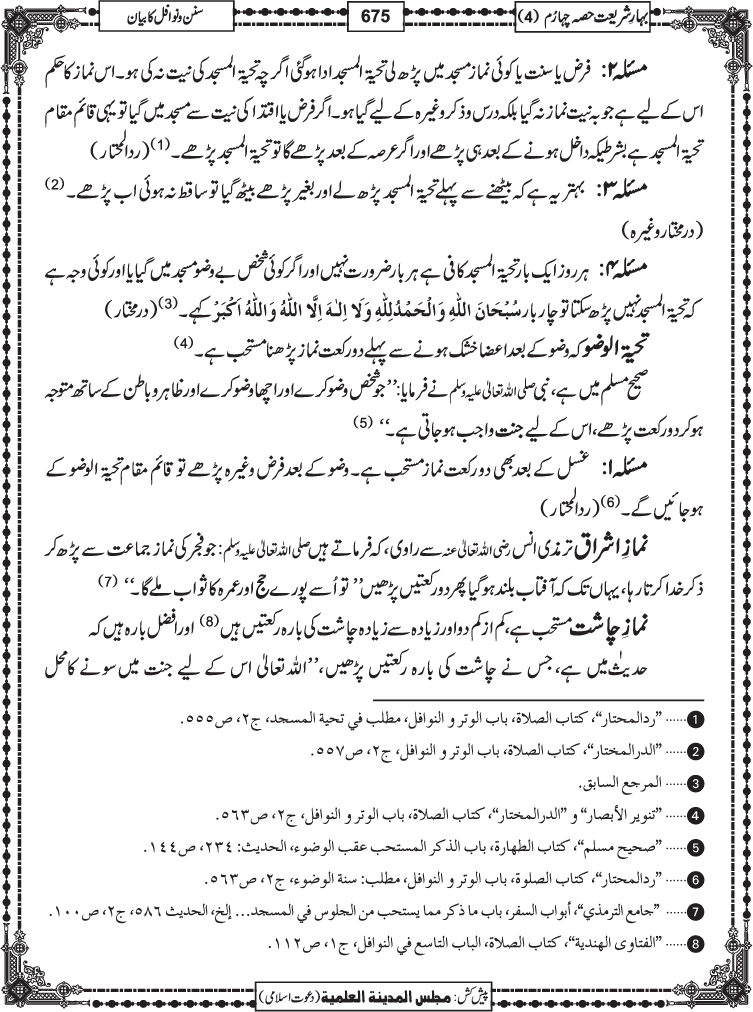 بہارِ شریعت حصہ چہارم (4)
675
سنن و نوافل کا بیان
مسئلہ ۲: فرض یا سنت یا کوئی نماز مسجد میں پڑھ لی تحیۃ المسجد ادا ہوگئی اگرچہ تحیۃ المسجد کی نیت نہ کی ہو۔ اس نماز کا حکم
اس کے لیے ہے جو بہ نیت نماز نہ گیا بلکہ درس و ذکر وغیرہ کے لیے گیا ہو۔ اگر فرض یا اقتدا کی نیت سے مسجد میں گیا تو یہی قائم مقام
تحیۃ المسجد ہے بشرطیکہ داخل ہونے کے بعد ہی پڑھے اور اگر عرصہ کے بعد پڑھے گا تو تحیۃ المسجد پڑھے۔ (1) (ردالمحتار)
مسئلہ ۳: بہتر یہ ہے کہ بیٹھنے سے پہلے تحیۃ المسجد پڑھ لے اور بغیر پڑھے بیٹھ گیا تو ساقط نہ ہوئی اب پڑھے۔ (2)
(درمختار وغیرہ)
مسئلہ ۴: ہر روز ایک بار تحیۃ المسجد کافی ہے ہر بار ضرورت نہیں اور اگر کوئی شخص بے وضو مسجد میں گیا یا اور کوئی وجہ ہے
کہ تحیۃ المسجد نہیں پڑھ سکتا تو چار بار سُبْحَانَ اللّٰهِ وَالْحَمْدُلِلّٰهِ وَلَا اِلٰـهَ اِلَّا اللّٰهُ وَاللّٰهُ اَكْبَرْ کہے۔ (3) (درمختار)
تحیۃ الوضو کہ وضو کے بعد اعضا خشک ہونے سے پہلے دو رکعت نماز پڑھنا مستحب ہے۔ (4)
صحیح مسلم میں ہے، نبی صلی اللہ تعالیٰ علیہ وسلم نے فرمایا: ’’جو شخص وضو کرے اور اچھا وضو کرے اور ظاہر و باطن کے ساتھ متوجہ
ہو کر دو رکعت پڑھے، اس کے لیے جنت واجب ہو جاتی ہے۔‘‘ (5)
مسئلہ ۱: غسل کے بعد بھی دو رکعت نماز مستحب ہے۔ وضو کے بعد فرض وغیرہ پڑھے تو قائم مقام تحیۃ الوضو کے
ہو جائیں گے۔ (6) (ردالمحتار)
نمازِ اشراق ترمذی انس رضی اللہ تعالیٰ عنہ سے راوی، کہ فرماتے ہیں صلی اللہ تعالیٰ علیہ وسلم: جو فجر کی نماز جماعت سے پڑھ کر
ذکر خدا کرتا رہا، یہاں تک کہ آفتاب بلند ہوگیا پھر دو رکعتیں پڑھیں’’ تو اُسے پورے حج اور عمرہ کا ثواب ملے گا۔‘‘ (7)
نمازِ چاشت مستحب ہے، کم از کم دو اور زیادہ سے زیادہ چاشت کی بارہ رکعتیں ہیں (8) اور افضل بارہ ہیں کہ
حدیث میں ہے، جس نے چاشت کی بارہ رکعتیں پڑھیں، ’’اللہ تعالیٰ اس کے لیے جنت میں سونے کا محل
1 ...... ”ردالمحتار“، كتاب الصلاة، باب الوتر و النوافل، مطلب في تحية المسجد، ج٢، ص٥٥٥.
2 ...... ”الدرالمختار“، كتاب الصلاة، باب الوتر و النوافل، ج٢، ص٥٥٧.
3 ...... المرجع السابق.
4 ...... ”تنوير الأبصار“ و ”الدرالمختار“، كتاب الصلاة، باب الوتر و النوافل، ج٢، ص٥٦٣.
5 ...... ”صحيح مسلم“، كتاب الطهارة، باب الذكر المستحب عقب الوضوء، الحديث: ٢٣٤، ص١٤٤.
6 ...... ”ردالمحتار“، كتاب الصلوة، باب الوتر و النوافل، مطلب: سنة الوضوء، ج٢، ص٥٦٣.
7 ...... ”جامع الترمذي“، أبواب السفر، باب ما ذكر مما يستحب من الجلوس في المسجد... إلخ، الحديث ٥٨٦، ج٢، ص١٠٠.
8 ...... ”الفتاوى الهندية“، كتاب الصلاة، الباب التاسع في النوافل، ج١، ص١١٢.
پیش کش: مجلس المدينة العلمية (دعوت اسلامی)